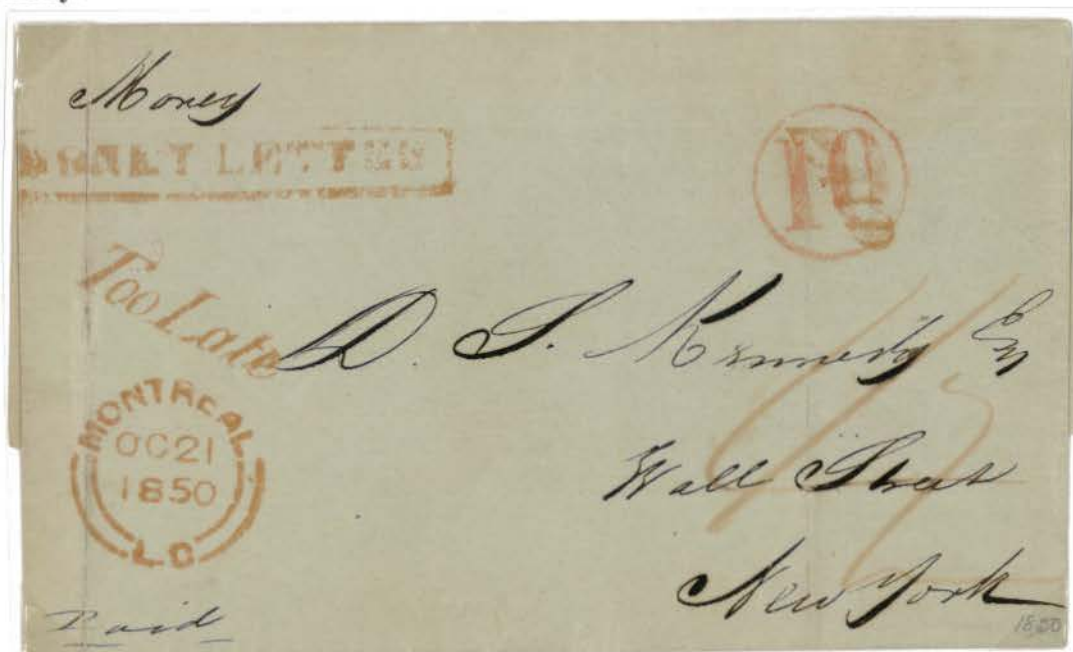 Money
MONEY LETTER
10
Too Late
D. S. Kennedy Esq
Wall Street
New York
MONTREAL
OC21
1850
L.C
Paid
1850